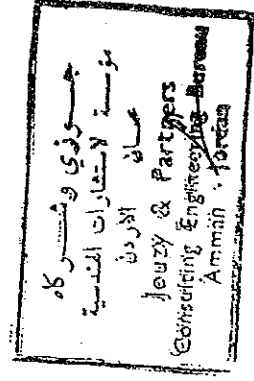 جوزي وشركاه
مؤسسة الاستشارات الهندسية
عمان الاردن
Jouzy & Partners
Consulting Engineering Bureau
Amman . Jordan